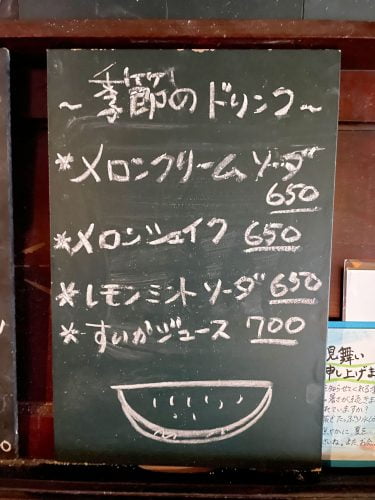 ～季節のドリンク～
*メロンクリームソーダ
650
*メロンシェイク 650
*レモンミントソーダ 650
*すいかジュース 700
見舞い
申し上げま